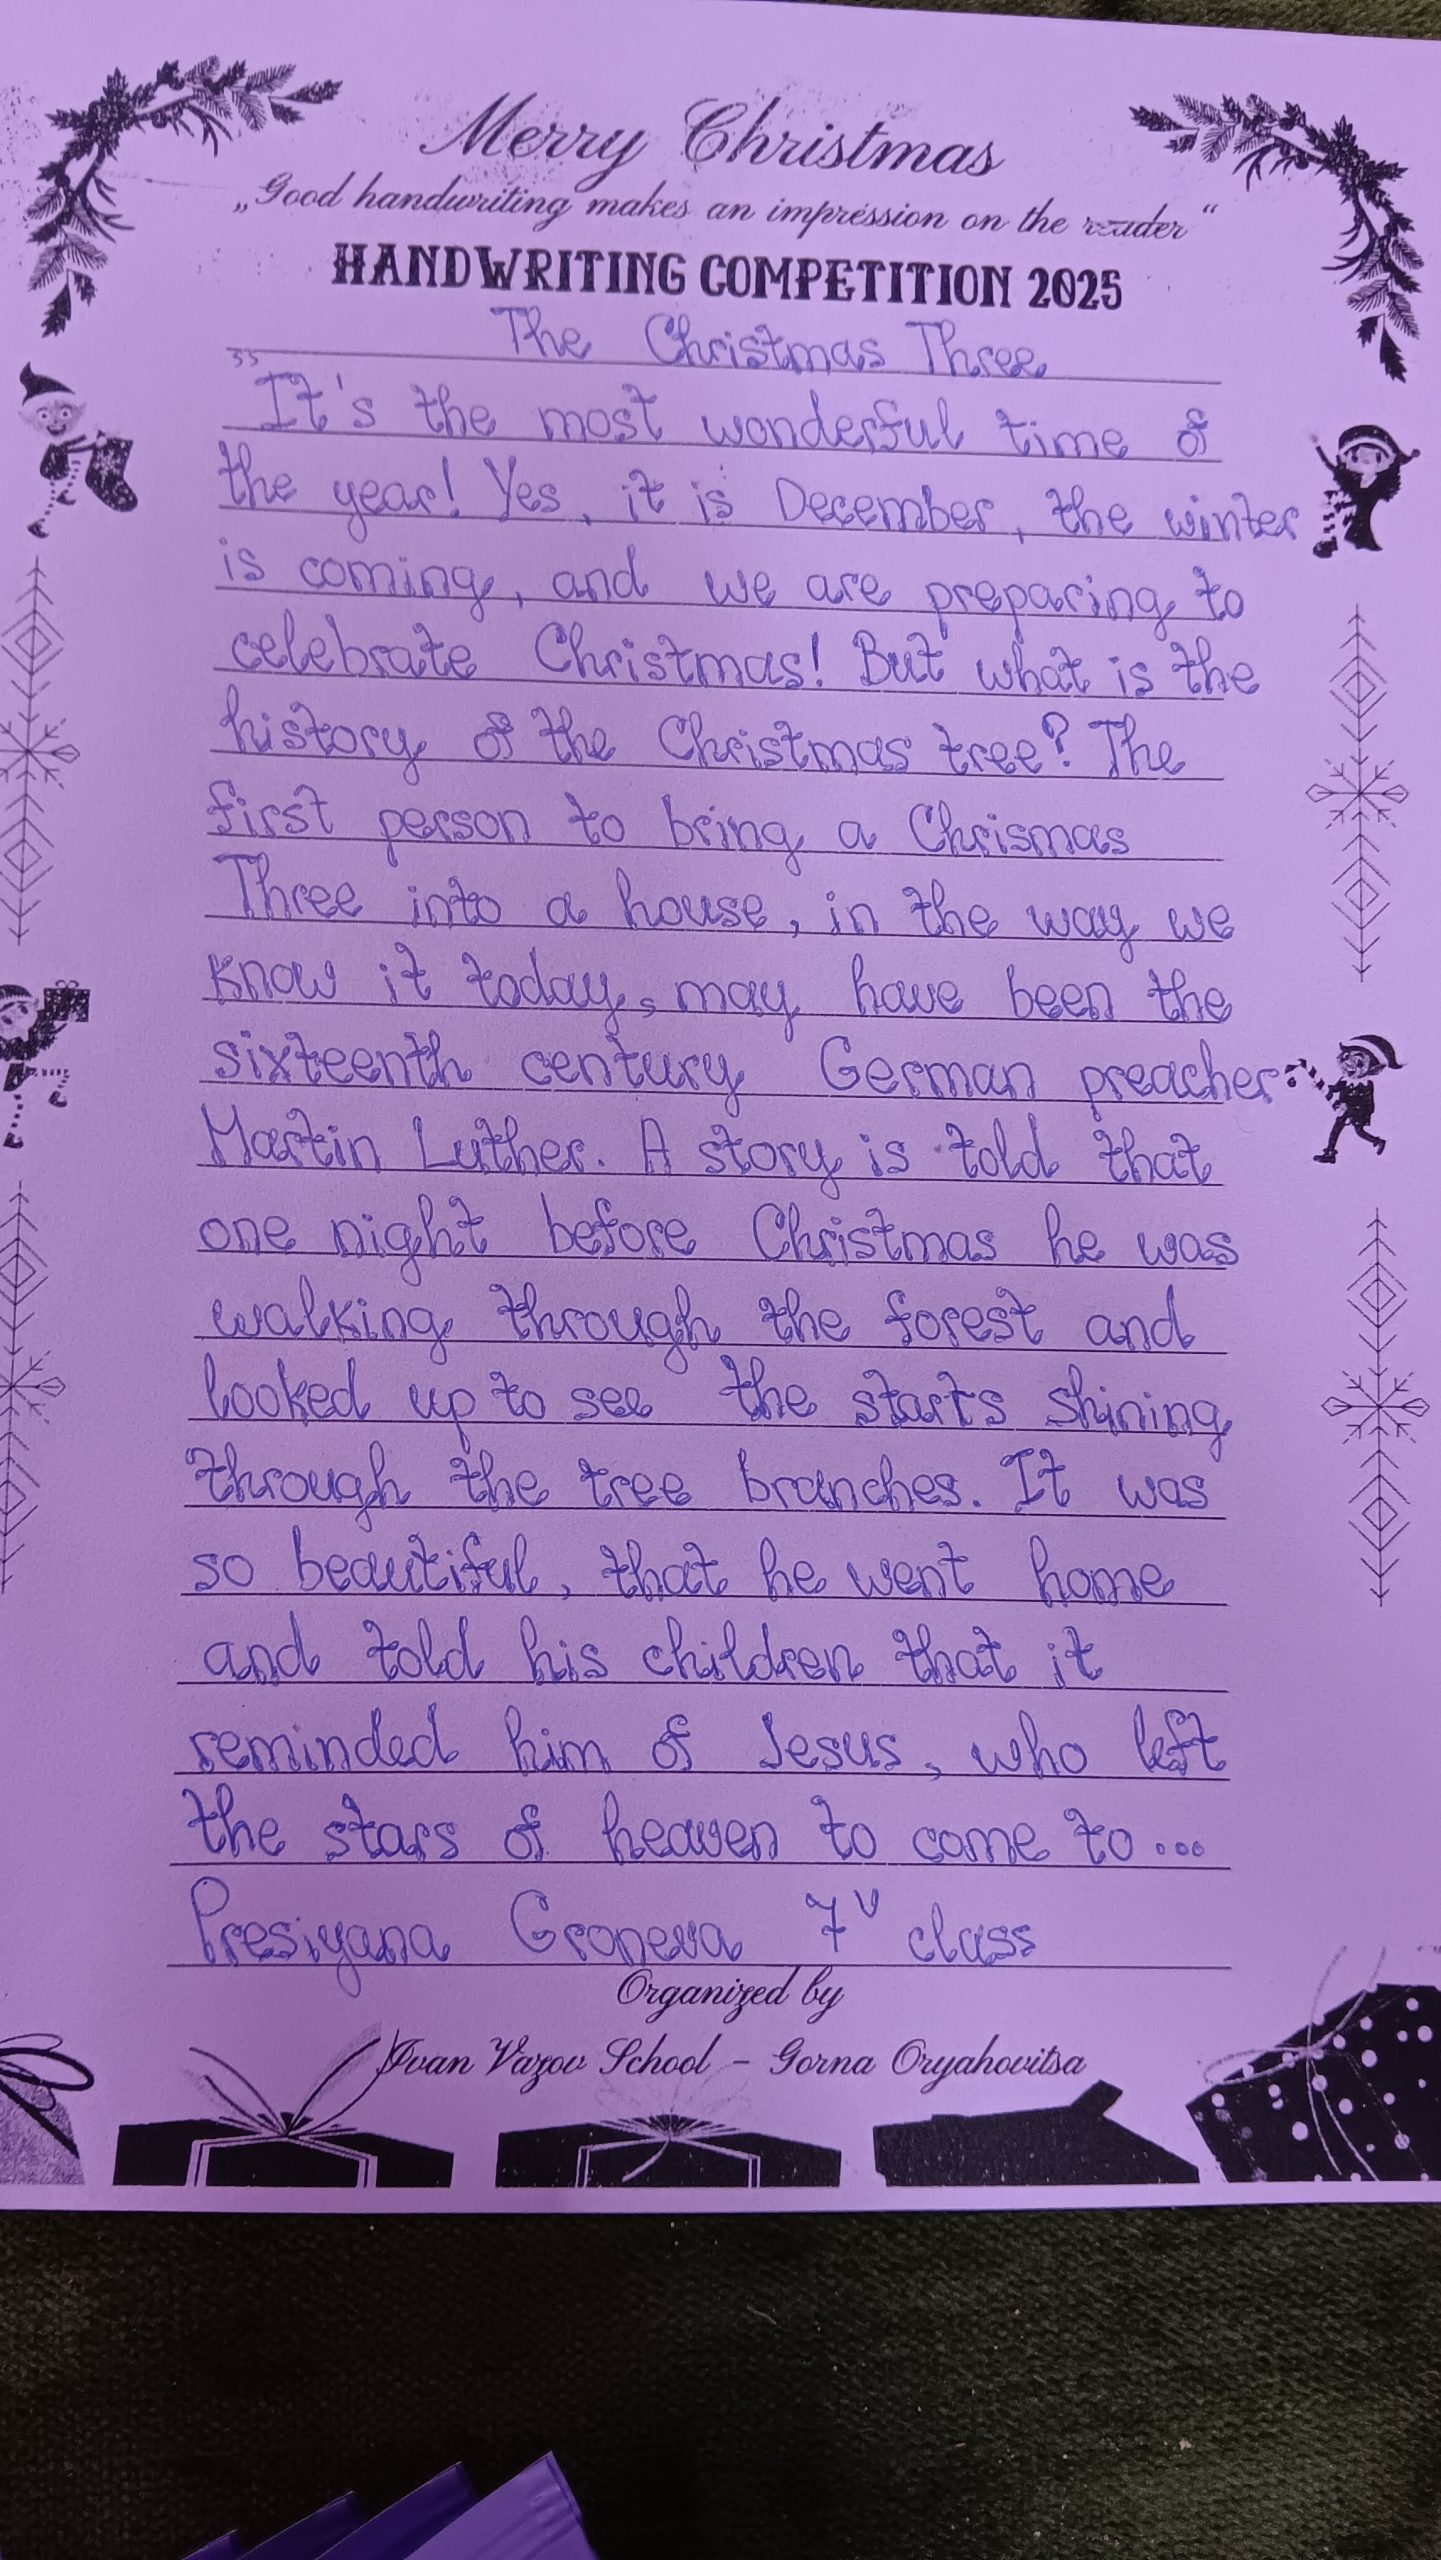 Merry Christmas
„Good handwriting makes an impression on the reader“
HANDWRITING COMPETITION 2025
The Christmas Three
„It's the most wonderful time of
the year! Yes, it is December, the winter
is coming, and we are preparing to
celebrate Christmas! But what is the
history of the Christmas tree? The
first person to bring a Chrismas
Three into a house, in the way we
know it today, may have been the
sixteenth century German preacher
Martin Luther. A story is told that
one night before Christmas he was
walking through the forest and
looked up to see the starts shining
through the tree branches. It was
so beautiful, that he went home
and told his children that it
reminded him of Jesus, who left
the stars of heaven to come to...
Presiyana Groneva 7v class
Organized by
Ivan Vazov School - Gorna Oryahovitsa